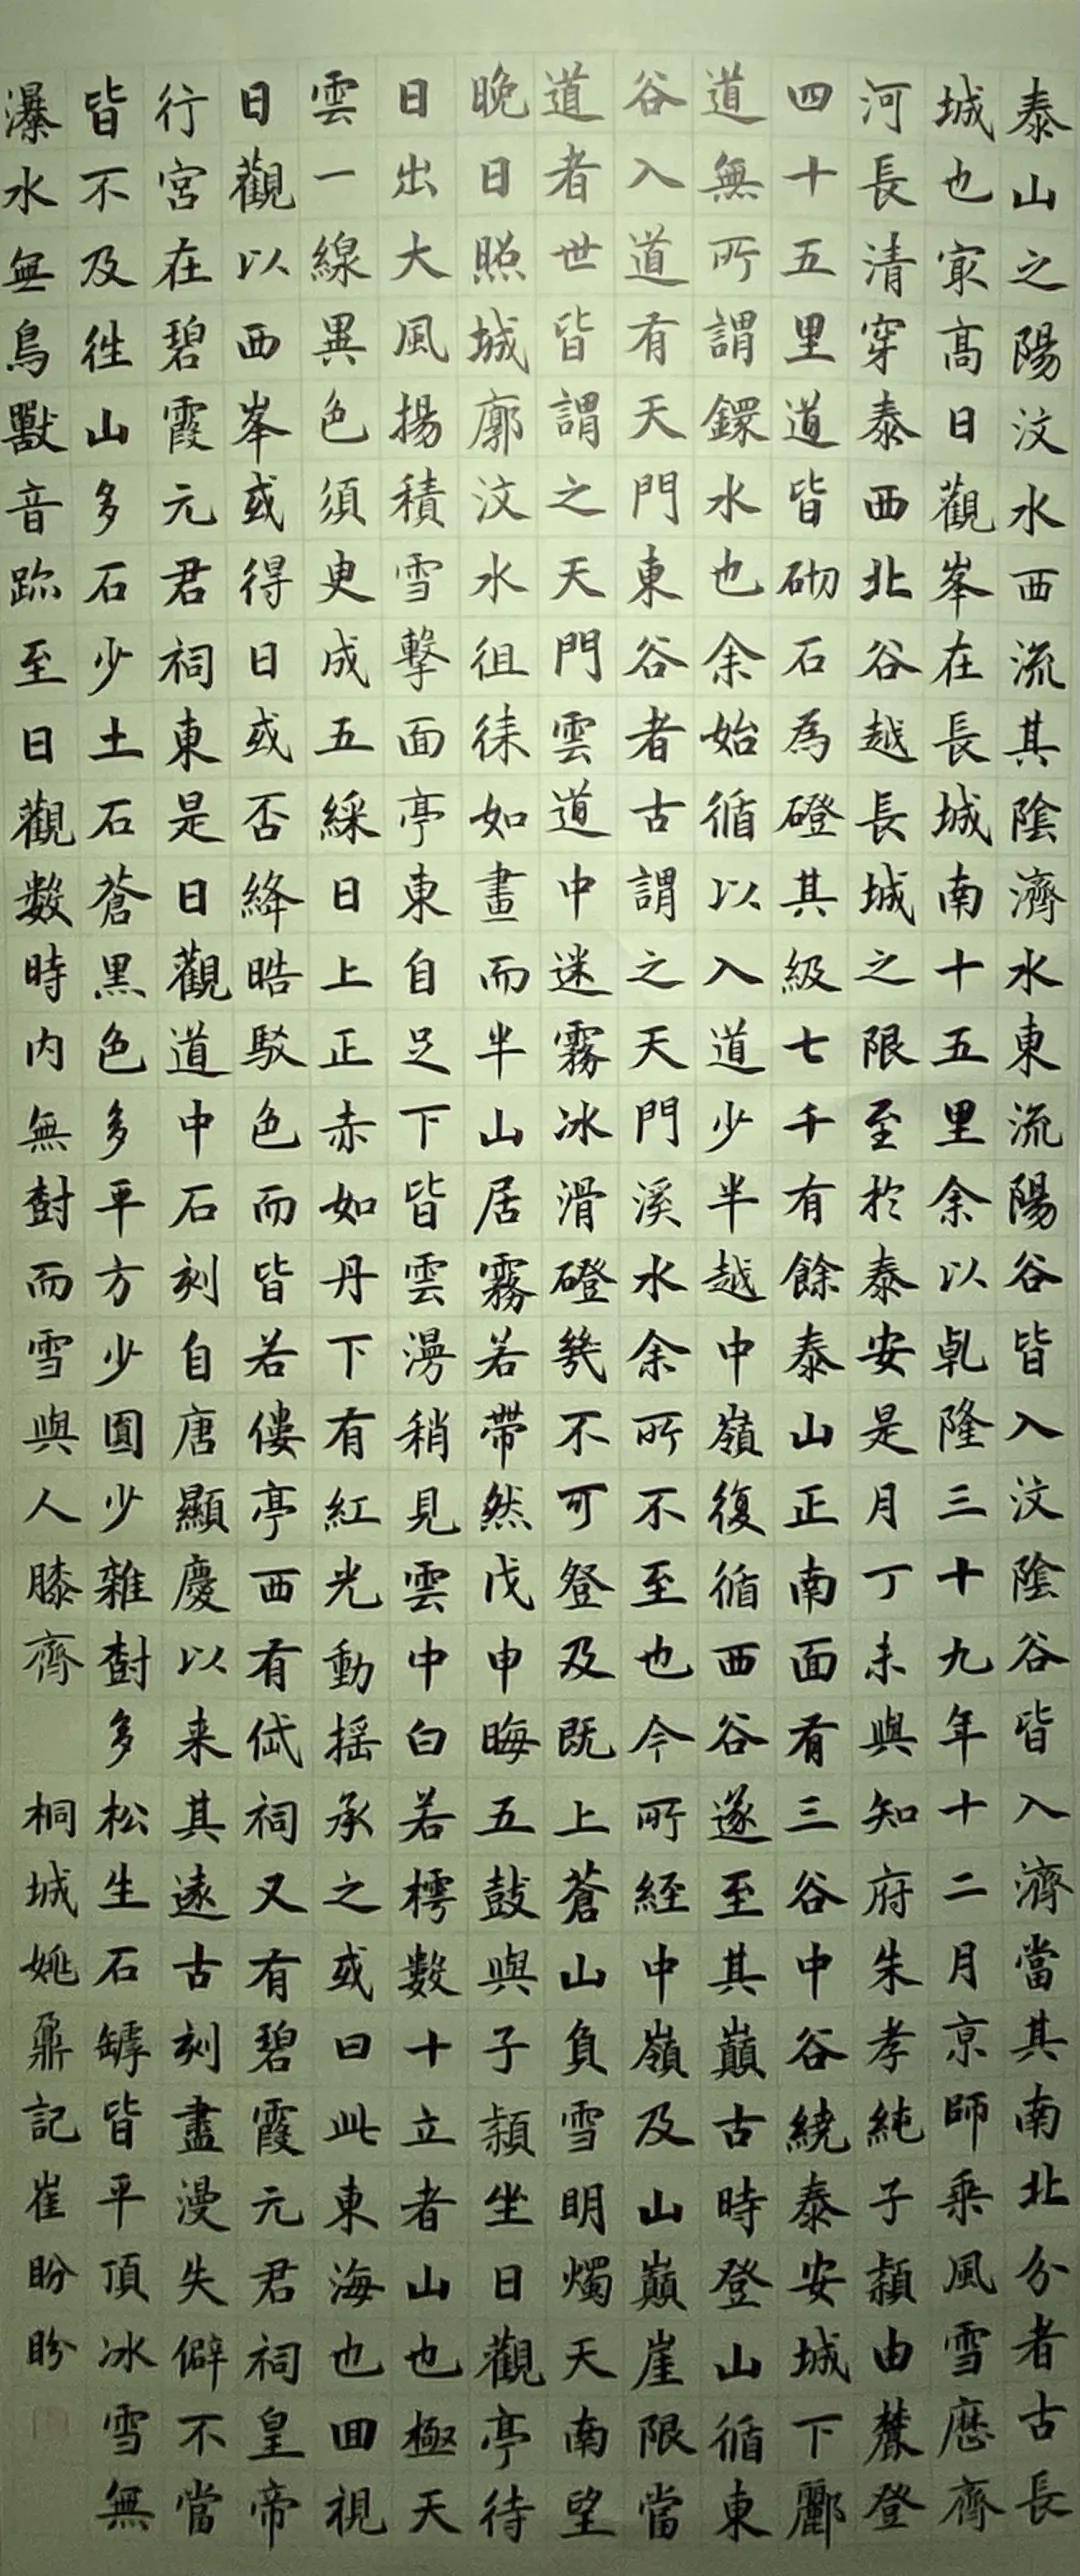 泰山之陽汶水西流其陰濟水東流陽谷皆入汶陰谷皆入濟當其南北分者古長
城也㝡高日觀峯在長城南十五里余以乹隆三十九年十二月京師乘風雪歷齊
河長清穿泰西北谷越長城之限至於泰安是月丁未與知府朱孝純子潁由麓登
四十五里道皆砌石為磴其級七千有餘泰山正南面有三谷中谷繞泰安城下酈
道無所謂鐶水也余始循以入道少半越中嶺復循西谷遂至其巔古時登山循東
谷入道有天門東谷者古謂之天門溪水余所不至也今所經中嶺及山巔崖限當
道者世皆謂之天門雲道中迷霧冰滑磴幾不可登及既上蒼山負雪明燭天南望
晚日照城廓汶水徂徕如畫而半山居霧若帶然戊申晦五鼓與子潁坐日觀亭待
日出大風揚積雪擊面亭東自足下皆雲漫稍見雲中白若樗數十立者山也極天
雲一線異色須臾成五綵日上正赤如丹下有紅光動摇承之或曰此東海也回視
日觀以西峯或得日或否絳皓駁色而皆若僂亭西有岱祠又有碧霞元君祠皇帝
行宮在碧霞元君祠東是日觀道中石刻自唐顯慶以来其遠古刻盡漫失僻不當
皆不及徃山多石少土石蒼黑色多平方少圓少雜樹多松生石罅皆平頂冰雪無
瀑水無鳥獸音跡至日觀數時内無樹而雪與人膝齊 桐城姚鼐記崔盼盼